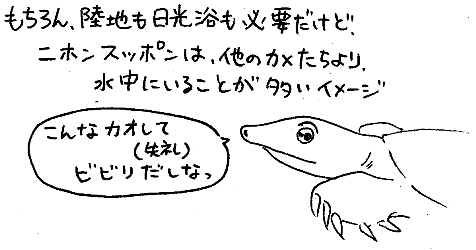 もちろん、陸地も日光浴も必要だけど、
ニホンスッポンは、他のカメたちより、
水中にいることが多いイメージ
こんなカオして
(失礼)
ビビリだしなっ